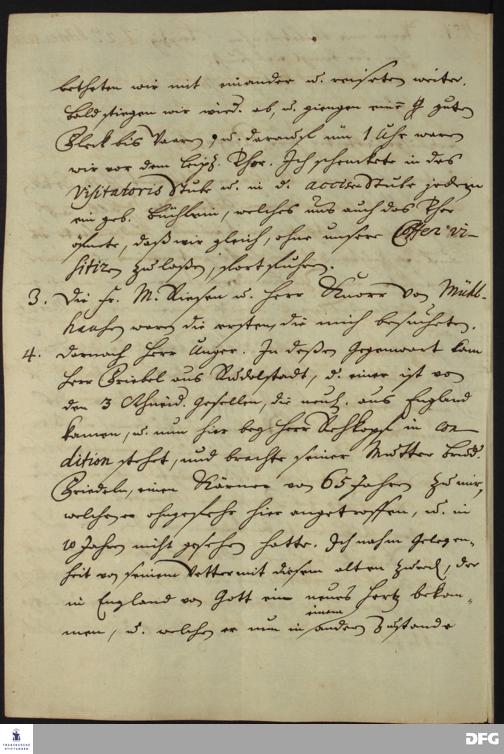 betheten wir mit einander u. reiseten weiter.
Bald stiegen wir wied. ab, u. giengen eine gute
bis u. darauf um 1 Uhr waren
wir vor dem Leipz. Thor. Ich schenckete in des
Visitatoris Stube u. in d. accise Stube jedem
ein geb. Büchlein, welches uns auch das Thor
öfnete, daß wir gleich, ohne unsere Coffer vi-
sitiren zu laßen, fortfuhren.
3. Die Fr. M. u. Herr Knorr von Mühl-
hausen waren die ersten, die mich besuchten.
4. darnach Herr Unger. In deßen Gegenwart kam
Herr Griebel aus Rudelstadt, d. einer ist von
den 3 Schneid. Gesellen, die neul. aus England
kamen, u. nun hier bey Herr in con
dition stehet, und brachte seiner Mutter Brud.
einen von 65 Jahren zu mir,
welchen er ohngefehr hier angetroffen, u. in
10 Jahren nicht gesehen hatte. Ich nahm Gelegen-
heit von seinem Vetter mit diesem alten zu red., der
in England von Gott ein neues Hertz bekom-
men, u. welchen er nun in einem andern Zustande
FRANCKESCHE
STIFTUNGEN
DFG